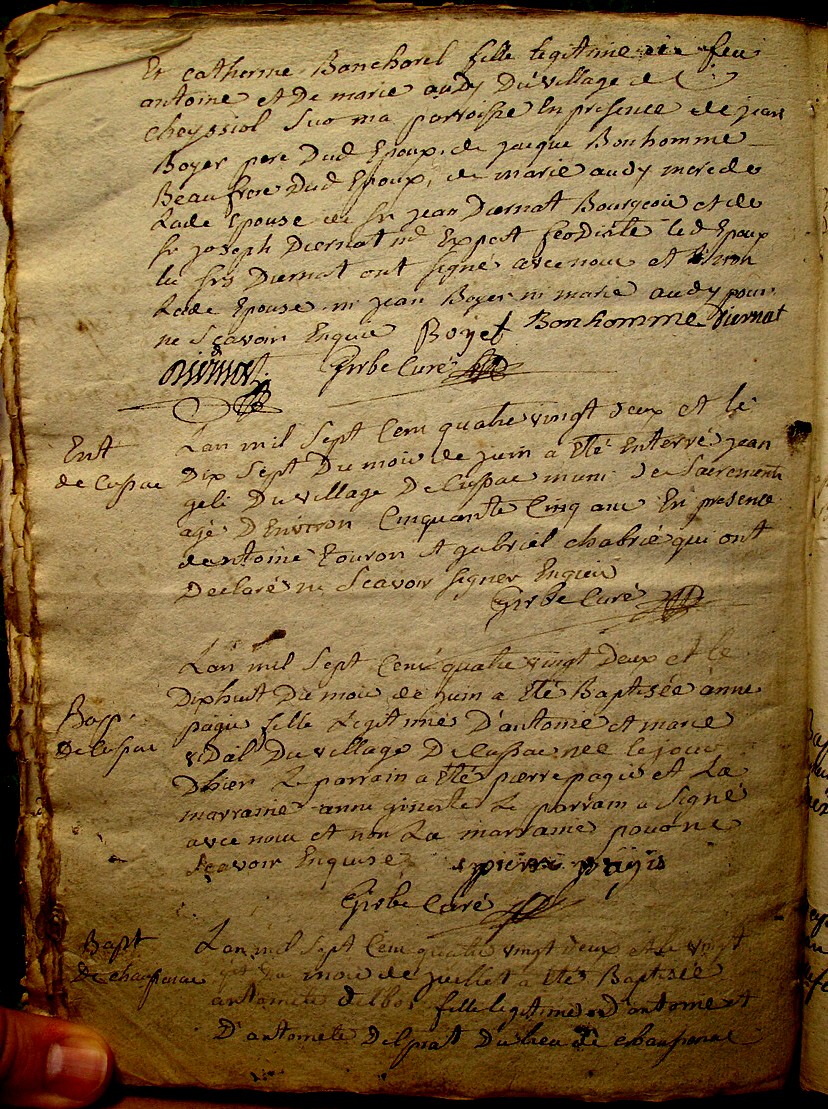 Et catherine Banchorel fille legitime de feu
antoine et De marie audy Du village de
cheyssiol Sur ma parroisse En presence de jean
Boyer pere Dud Epoux, de jacque Bonhomme
Beaufrere Dud Epoux, de marie audy mere de
Lade Epouse de Sr jean Diernat Bourgeois et de
Sr joseph Diernat md Expert feodiste led Epoux
les Srs Diernat ont signé avec nous et non
Lade Epouse ni jean Boyer ni marie audy pour
ne Scavoir Enquis Boyer Bonhomme Diernat
Diernat Girbe Curé
Ent
de Cussac
Lan mil Sept Cent quatre vingt deux et le
Dix Sept Du mois de juin a Eté Enterré jean
geli Du village De Cussac muni des Sacrements
agé D'Environ Cinquante Cinq ans En presence
de antoine Touron et gabriel chabrié qui ont
Declaré ne Scavoir Signer Enquis
Girbe Curé
Bap.
De Cussac
Lan mil Sept Cent quatre vingt Deux et le
Dixhuit Du mois de juin a Eté Baptisée anne
pagis fille Legitime D'antoine et marie
vidal Du village De Cussac née le jour
Dhier Le parrain a Eté pierre pagis et La
marraine anne gineste Le parrain a Signé
avec nous et non La marraine pour ne
Scavoir Enquise pierre pagis
Girbe Curé
Bapt
de chaussenac
Lan mil Sept Cent quatre vingt deux et le vingt
du mois de juillet a Eté Baptisée
antoinete delbos fille legitime D'antoine et
D'antoinete Delprat Du lieu de chaussenac